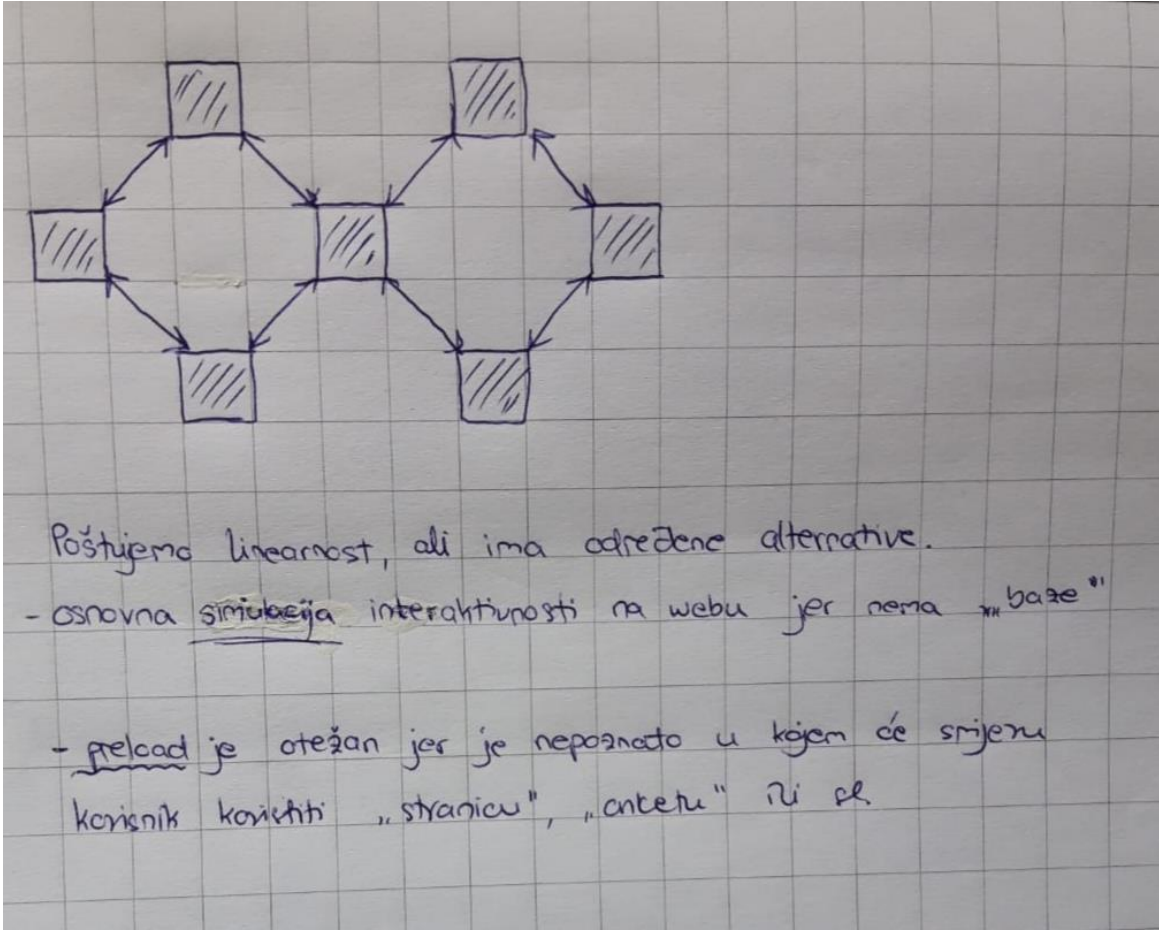 Poštujemo linearnost, ali ima određene alternative.
- osnovna simulacija interaktivnosti na webu jer nema „baze"
- preload je otežan jer je nepoznato u kojem će smjeru
korisnik koristiti „stranicu", „anketu" ili sl.